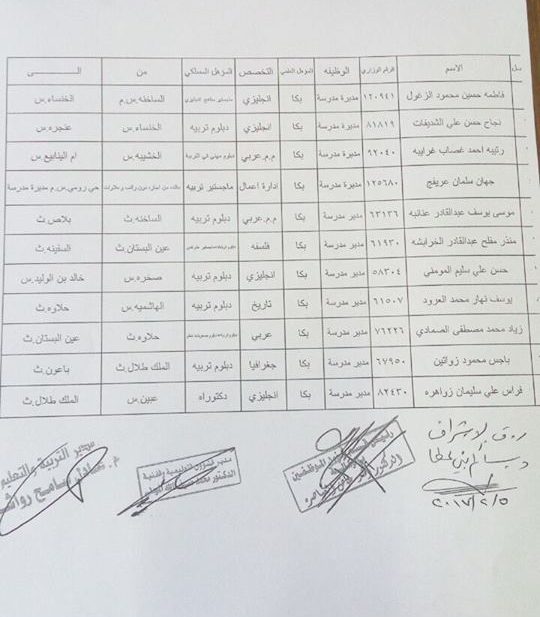 الاسم الرقم الوزاري الوظيفه المؤهل العلمي التخصص المؤهل المسلكي من الـــــى
فاطمه حسين محمود الزغول ١٢٠٩٤١ مديرة مدرسة بكا انجليزي الساخنه.س.م الخنساء.س
نجاح حسن علي الشديفات ٨١٨١٩ مديرة مدرسة بكا انجليزي دبلوم تربيه الخنساء.س عنجره.س
رتيبه احمد غصاب غرايبه ٩٢٠٤٠ مديرة مدرسة بكا م.م.عربي دبلوم مهني في التربية الخشيبه.س ام الينابيع.س
جهان سلمان عريفج ١٢٥٦٨٠ مديرة مدرسة بكا ادارة اعمال ماجستير تربيه حي رومي.س.م مديرة مدرسة
موسى يوسف عبدالقادر عنانبه ٦٢١٣٦ مدير مدرسة بكا م.م.عربي دبلوم تربيه الساخنه.ث بلاص.ث
منذر مفلح عبدالقادر الخرابشه ٦١٩٣٠ مدير مدرسة بكا فلسفه عين البستان.ث السفينه.ث
حسن علي سليم المومني ٥٨٣٠٤ مدير مدرسة بكا انجليزي دبلوم تربيه صخره.س خالد بن الوليد.س
يوسف نهار محمد العرود ٦١٥٠٧ مدير مدرسة بكا تاريخ دبلوم تربيه الهاشميه.س حلاوه.ث
زياد محمد مصطفى الصمادي ٧٦٢٢٦ مدير مدرسة بكا عربي حلاوه.ث عين البستان.ث
باجس محمود زواتين ٦٧٩٥٠ مدير مدرسة بكا جغرافيا دبلوم تربيه الملك طلال.ث باعون.ث
فراس علي سليمان زواهره ٨٢٤٣٠ مدير مدرسة بكا انجليزي دكتوراه عبين.س الملك طلال.ث
مدير التربية والتعليم
٢٠١٧/٢/٥